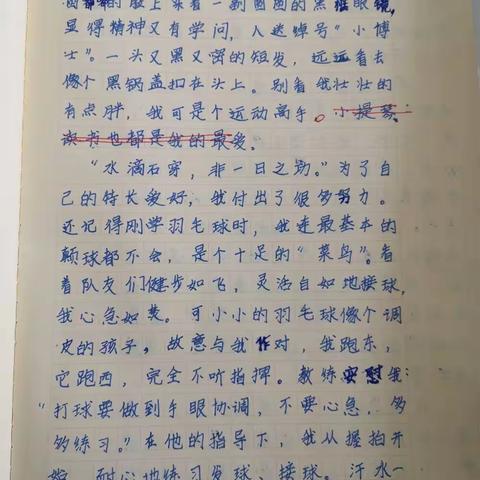 的脸上架着一副圆圆的黑框眼镜,
显得精神又有学问,人送绰号“小博
士”。一头又黑又密的短发,远远看去
像个黑锅盖扣在头上。别看我壮壮的
有点胖,我可是个运动高手。小提琴、
读书也都是我的最爱。
“水滴石穿,非一日之功。”为了自
己的特长爱好,我付出了很多努力。
还记得刚学羽毛球时,我连最基本的
颠球都不会,是个十足的“菜鸟”。看
着队友们健步如飞,灵活自如地接球,
我心急如焚。可小小的羽毛球像个调
皮的孩子,故意与我作对,我跑东,
它跑西,完全不听指挥。教练安慰我:
“打球要做到手眼协调,不要心急,多
多练习。”在他的指导下,我从握拍开
始,耐心地练习发球、接球。汗水一